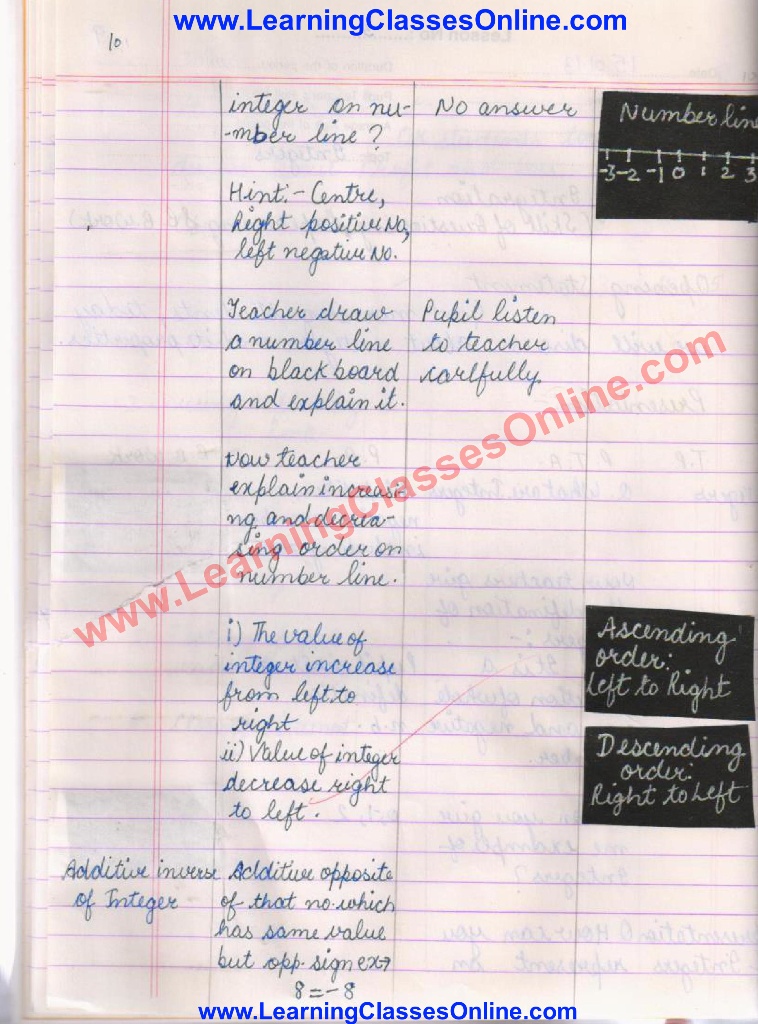 www.LearningClassesOnline.com
10
integer on nu-
-mber line?
Hint:- Centre,
Right positive No,
left negative No.
Teacher draw
a number line
on black board
and explain it.
Now teacher
explain increasi-
ng and decrea-
sing order on
number line.
i) The value of
integer increase
from left to
right
ii) Value of integer
decrease right
to left.
Additive inverse
of Integer
Additive opposite
of that no. which
has same value
but opp. sign ex→
8 = -8
No answer
Pupil listen
to teacher
carlfully
Number line
-3 -2 -1 0 1 2 3
Ascending
order:
Left to Right
Descending
order:
Right to Left
www.LearningClassesOnline.com
www.LearningClassesOnline.com